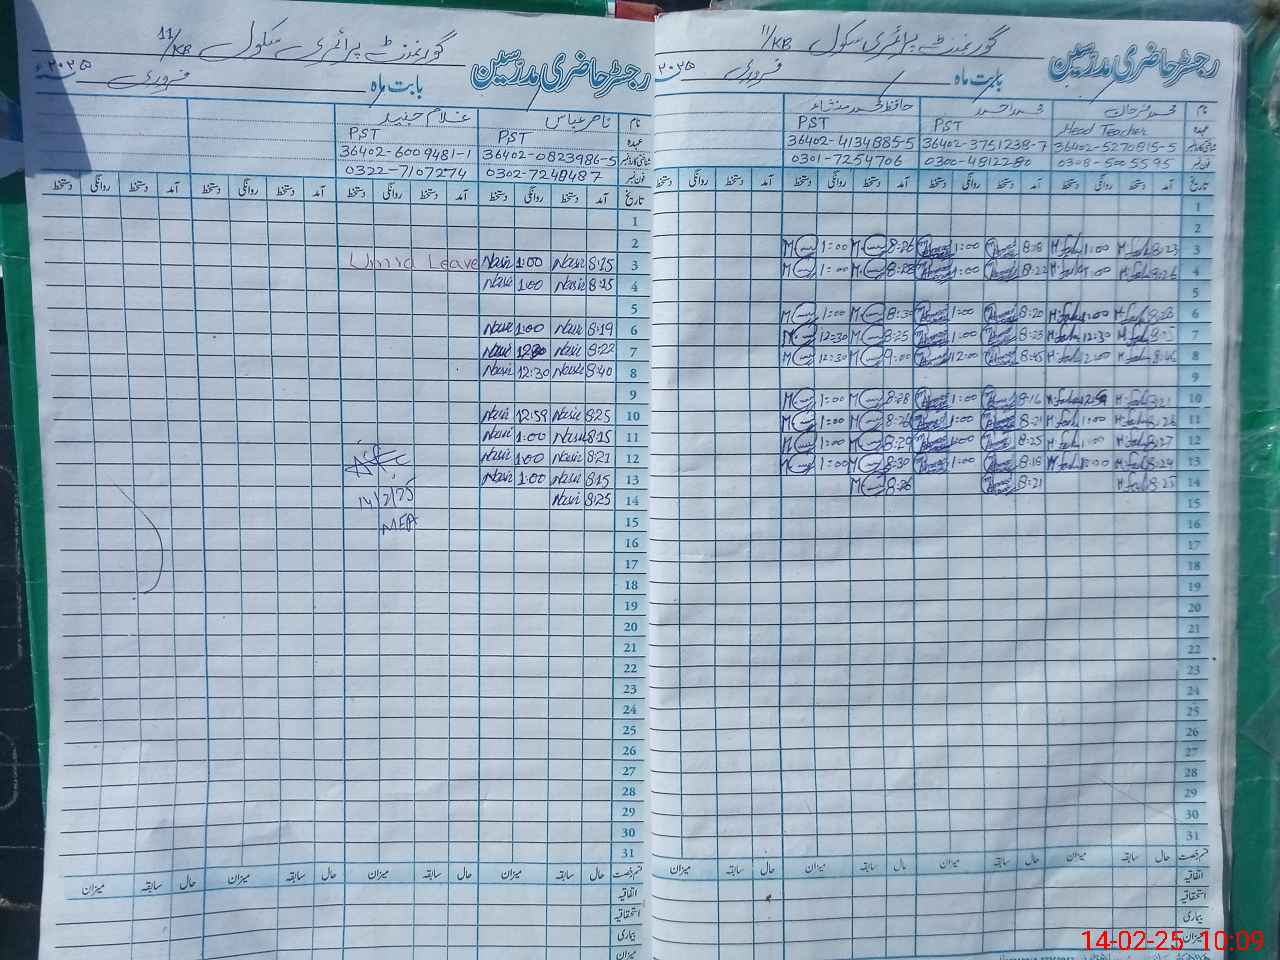 گورنمنٹ پرائمری سکول 11/KB
رجسٹر حاضری مدرسین
بابت ماہ فروری ۲۰۲۵
نام ناصر عباس غلام جنید
عہدہ PST PST
36402-0823986-5 36402-6009481-1
فون نمبر 0302-7248487 0322-7107274
تاریخ آمد دستخط روانگی دستخط آمد دستخط روانگی دستخط آمد دستخط روانگی دستخط آمد دستخط روانگی دستخط
1
2
3 8:15 Nasir 1:00 Nasir Umra Leave
4 8:15 Nasir 1:00 Nasir
5
6 8:19 Nasir 1:00 Nasir
7 8:22 Nasir 12:30 Nasir
8 8:40 Nasir 12:30 Nasir
9
10 8:25 Nasir 12:59 Nasir
11 8:15 Nasir 1:00 Nasir
12 8:21 Nasir 1:00 Nasir
13 8:15 Nasir 1:00 Nasir
14 8:25 Nasir
14/2/25
MEA
15
16
17
18
19
20
21
22
23
24
25
26
27
28
29
30
31
قسم رخصت حال سابقہ میزان حال سابقہ میزان حال سابقہ میزان حال سابقہ میزان
اتفاقیہ
استحقاقیہ
بیماری
میزان
گورنمنٹ پرائمری سکول 11/KB
رجسٹر حاضری مدرسین
بابت ماہ فروری ۲۰۲۵
نام محمد فرحان محمد احمد حافظ محمد منشاء
عہدہ Head Teacher PST PST
36402-5270815-5 36402-3751238-7 36402-4134885-5
فون نمبر 0308-5005595 0300-4812280 0301-7254706
تاریخ آمد دستخط روانگی دستخط آمد دستخط روانگی دستخط آمد دستخط روانگی دستخط آمد دستخط روانگی دستخط
1
2
3 8:23 1:00 8:18 1:00 8:26 1:00
4 8:26 1:00 8:22 1:00 8:28 1:00
5
6 8:28 1:00 8:20 1:00 8:30 1:00
7 12:30 8:23 1:00 8:25 12:30
8 8:46 12:00 8:45 12:00 9:00 12:30
9
10 8:21 8:16 1:00 8:28 1:00
11 8:28 1:00 8:21 1:00 8:26 1:00
12 8:27 1:00 8:25 1:00 8:29 1:00
13 8:24 1:00 8:18 1:00 8:30 1:00
14 8:25 8:21 8:26
15
16
17
18
19
20
21
22
23
24
25
26
27
28
29
30
31
قسم رخصت حال سابقہ میزان حال سابقہ میزان حال سابقہ میزان حال سابقہ میزان
اتفاقیہ
استحقاقیہ
بیماری
میزان
14-02-25 10:09